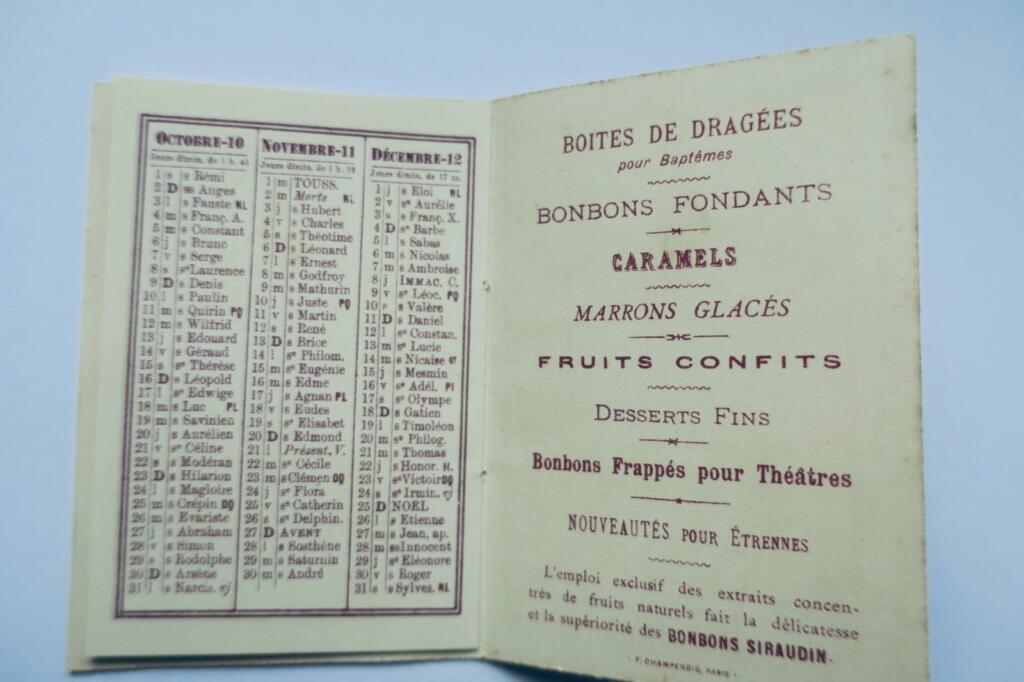 OCTOBRE-10
Jours dimin. de 1 h. 45
1 s s Rémi
2 D ss Anges
3 l s Fauste NL
4 m s Franç. A.
5 m s Constant
6 j s Bruno
7 v s Serge
8 s sᵉ Laurence
9 D s Denis
10 l s Paulin
11 m s Quirin PQ
12 m s Wilfrid
13 j s Edouard
14 v s Géraud
15 s sᵉ Thérèse
16 D s Léopold
17 l sᵉ Edwige
18 m s Luc PL
19 m s Savinien
20 j s Aurélien
21 v sᵉ Céline
22 s s Modéran
23 D s Hilarion
24 l s Magloire
25 m s Crépin DQ
26 m s Evariste
27 j s Abraham
28 v s Simon
29 s s Rodolphe
30 D s Arsène
31 l s Narcis. ej
NOVEMBRE-11
Jours dimin. de 1 h. 19
1 m TOUSS.
2 m Morts NL
3 j s Hubert
4 v s Charles
5 s s Théotime
6 D s Léonard
7 l s Ernest
8 m s Godfroy
9 m s Mathurin
10 j s Juste PQ
11 v s Martin
12 s s René
13 D s Brice
14 l sᵉ Philom.
15 m sᵉ Eugénie
16 m s Edme
17 j s Agnan PL
18 v s Eudes
19 s sᵉ Elisabet
20 D s Edmond
21 l Présent. V.
22 m sᵉ Cécile
23 m s Clémen DQ
24 j sᵉ Flora
25 v sᵉ Catherin
26 s sᵉ Delphin.
27 D AVENT
28 l s Sosthène
29 m s Saturnin
30 m s André
DÉCEMBRE-12
Jours dimin. de 17 m.
1 j s Eloi NL
2 v sᵉ Aurélie
3 s s Franç. X.
4 D sᵉ Barbe
5 l s Sabas
6 m s Nicolas
7 m s Ambroise
8 j IMMAC. C.
9 v sᵉ Léoc. PQ
10 s s Valère
11 D s Daniel
12 l sᵉ Constan.
13 m sᵉ Lucie
14 m s Nicaise
15 j s Mesmin
16 v sᵉ Adél. PL
17 s sᵉ Olympe
18 D s Gatien
19 l s Timoléon
20 m sᵉ Philog.
21 m s Thomas
22 j s Honor. H.
23 v sᵉ Victoir DQ
24 s sᵉ Irmin. ej
25 D NOEL
26 l s Etienne
27 m s Jean, ap.
28 m ss Innocent
29 j sᵉ Eléonore
30 v s Roger
31 s s Sylves. NL
BOITES DE DRAGÉES
pour Baptêmes
BONBONS FONDANTS
CARAMELS
MARRONS GLACÉS
FRUITS CONFITS
DESSERTS FINS
Bonbons Frappés pour Théâtres
NOUVEAUTÉS POUR ÉTRENNES
L'emploi exclusif des extraits concen-
trés de fruits naturels fait la délicatesse
et la supériorité des BONBONS SIRAUDIN.
- F. CHAMPENOIS, PARIS -